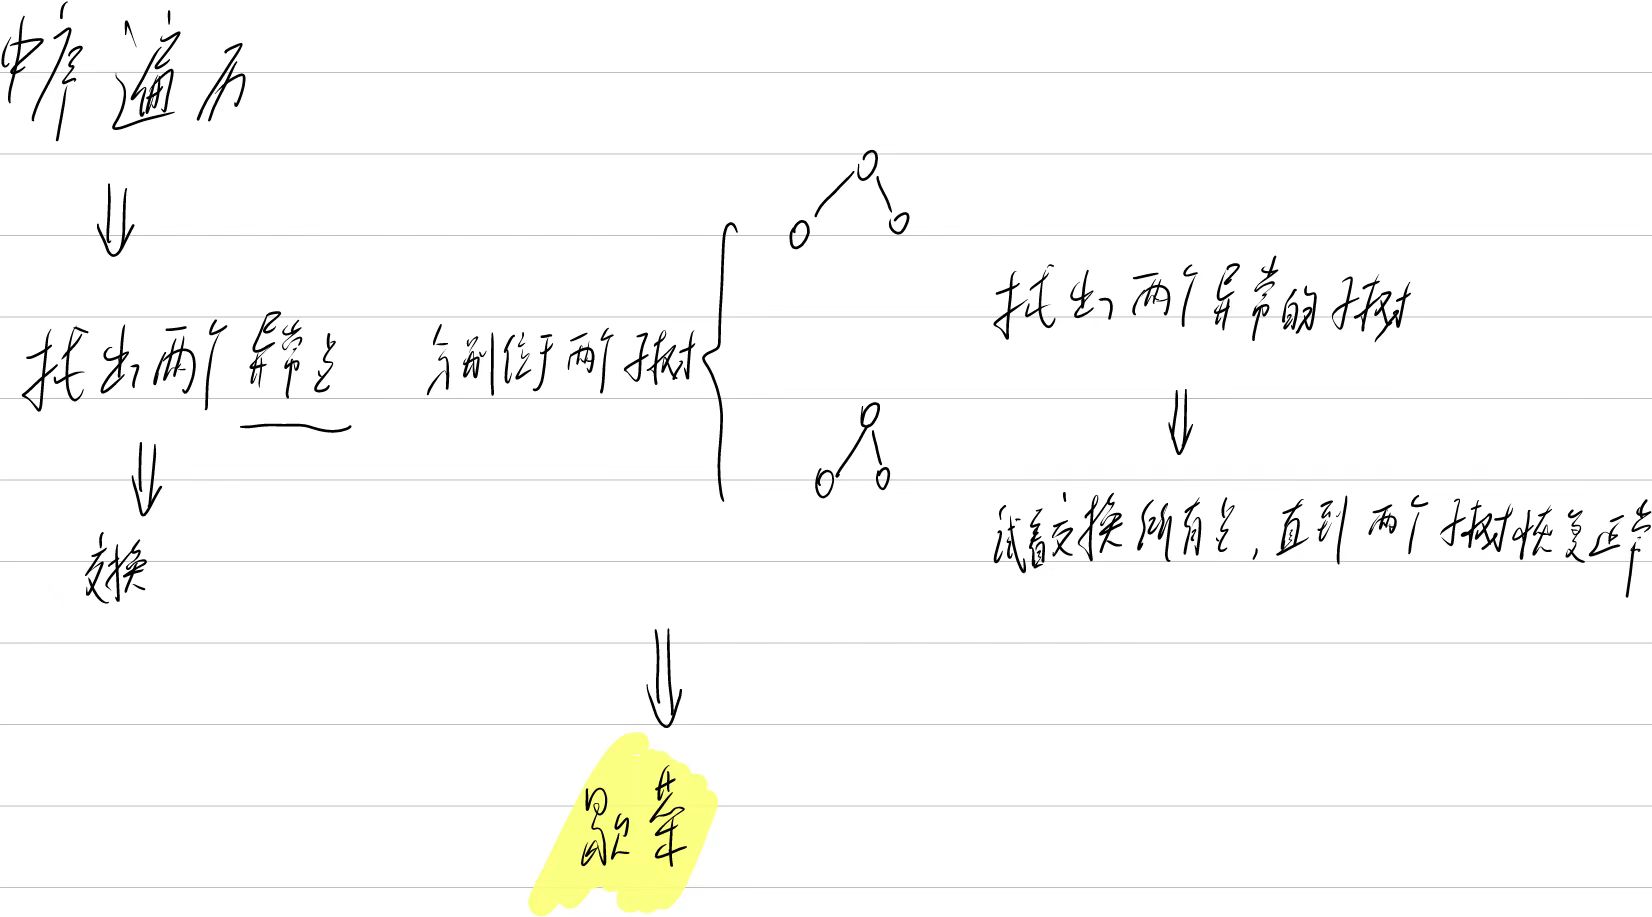 中序遍历
找出两个异常点
分别位于两个子树
找出两个异常的子树
交换
试着交换所有点,直到两个子树恢复正常
歇菜